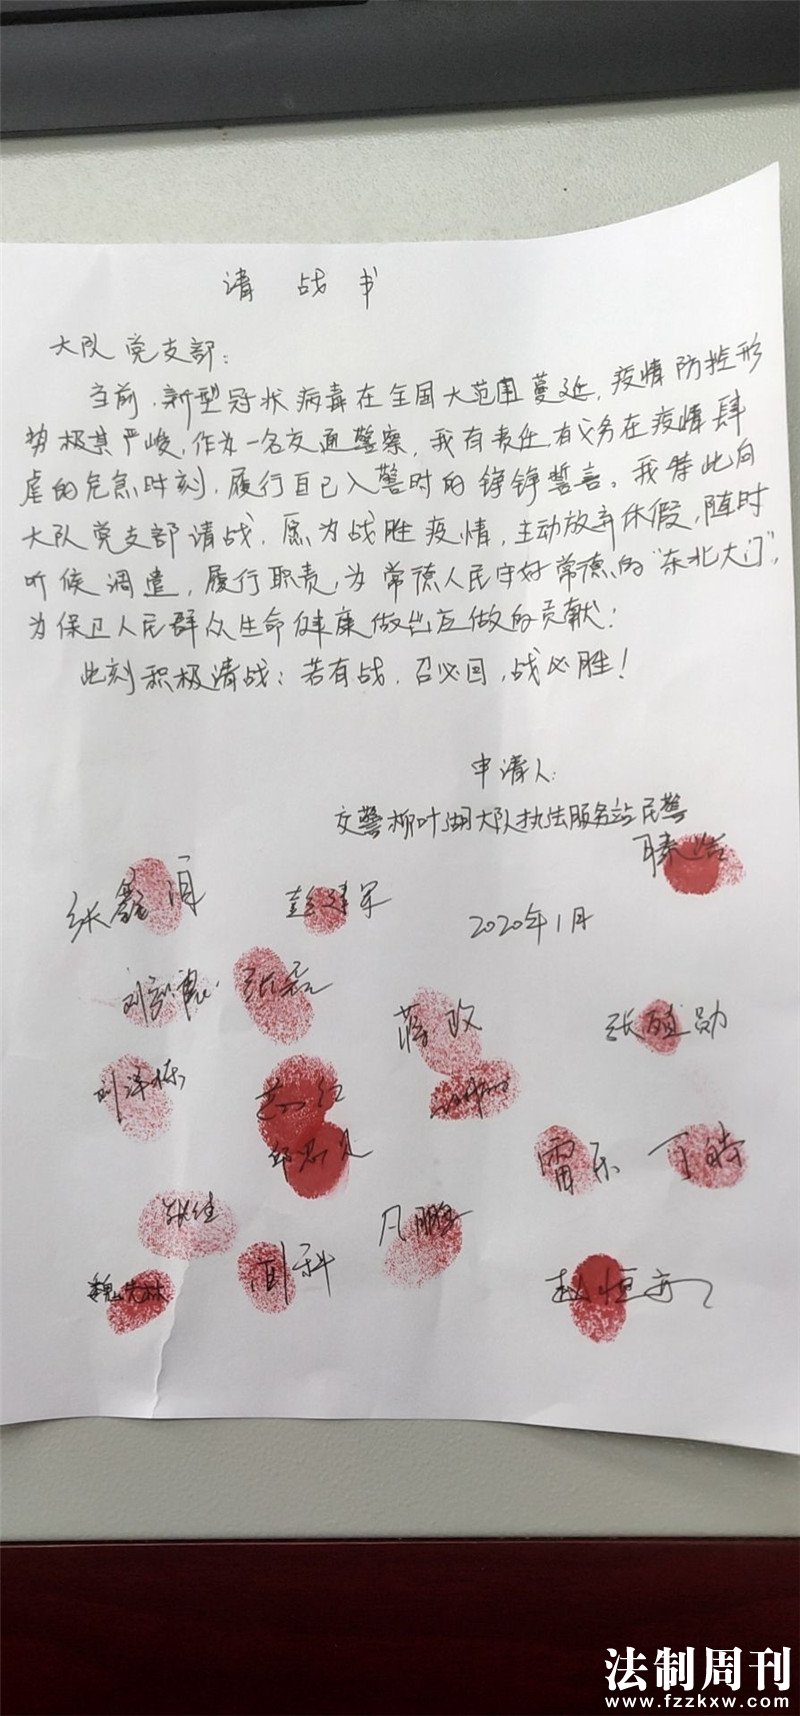 请战书
大队党支部：
当前，新型冠状病毒在全国大范围蔓延，疫情防控形
势极其严峻，作为一名交通警察，我有责任，有义务在疫情肆
虐的危急时刻，履行自己入警时的铮铮誓言。我特此向
大队党支部请战，愿为战胜疫情，主动放弃休假，随时
听候调遣，履行职责，为常德人民守好常德的“东北大门”，
为保卫人民群众生命健康做出应做的贡献！
此刻积极请战：若有战，召必回，战必胜！
申请人：
交警柳叶湖大队执法服务站民警
张鑫 彭建军
2020年1月
张磊
蒋政
刘洋栋
雷乐
凡鹏
魏先林 周科
法制周刊
www.fzzkxw.com